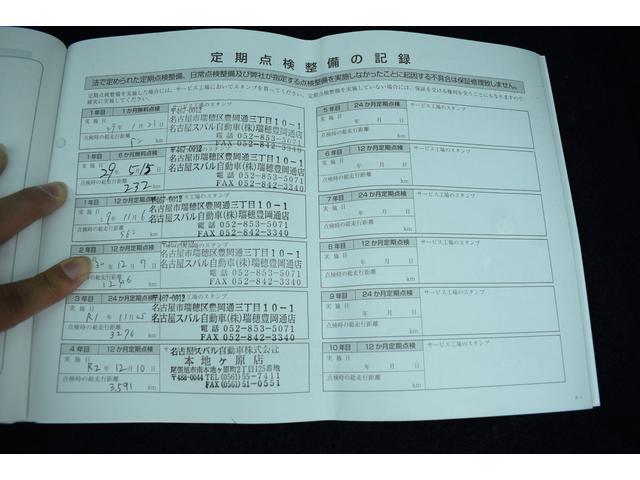 定期点検整備の記録
法で定められた定期点検整備、日常点検整備及び弊社が指定する点検整備を実施しなかったことに起因する不具合は保証修理致しません。
定期点検整備を実施した場合には、サービス工場においてスタンプを貰ってください。定期点検整備を実施していない場合には、保証を受ける権利を失うことにもなりますので、
確実に実施してください。
1年目 1か月無料点検 サービス工場のスタンプ
実施日 29年 1月 21日
点検時の総走行距離
52 km
〒467-0012
名古屋市瑞穂区豊岡通三丁目10-1
名古屋スバル自動車(株)瑞穂豊岡通店
電話 052-853-5071
FAX 052-842-3340
1年目 6か月無料点検
実施日 29年 5月15日
点検時の総走行距離
232 km
〒467-0012
名古屋市瑞穂区豊岡通三丁目10-1
名古屋スバル自動車(株)瑞穂豊岡通店
電話 052-853-5071
FAX 052-842-3340
1年目 12か月定期点検
実施日
点検時の総走行距離
km
〒467-0012
名古屋市瑞穂区豊岡通三丁目10-1
名古屋スバル自動車(株)瑞穂豊岡通店
電話 052-853-5071
FAX 052-842-3340
2年目 12か月定期点検
12月 7日
点検時の総走行距離
1246 km
〒467-0012
名古屋市瑞穂区豊岡通三丁目10-1
名古屋スバル自動車(株)瑞穂豊岡通店
電話 052-853-5071
FAX 052-842-3340
3年目 24か月定期点検 サービス工場のスタンプ
実施日
R1年 11月
点検時の総走行距離
3276 km
〒467-0012
名古屋市瑞穂区豊岡通三丁目10-1
名古屋スバル自動車(株)瑞穂豊岡通店
電話 052-853-5071
FAX 052-842-3340
4年目 12か月定期点検
実施日
R2年 12月 10日
点検時の総走行距離
3,591 km
名古屋スバル自動車株式会社
本地ヶ原店
尾張旭市南本地ヶ原町2丁目125番地
〒488-0044 TEL(0561)55-7411
FAX (0561)51-0551
5年目 24か月定期点検 サービス工場のスタンプ
実施日
年 月 日
点検時の総走行距離
km
6年目 12か月定期点検 サービス工場のスタンプ
実施日
年 月 日
点検時の総走行距離
km
7年目 24か月定期点検 サービス工場のスタンプ
実施日
年 月 日
点検時の総走行距離
km
8年目 12か月定期点検 サービス工場のスタンプ
実施日
年 月 日
点検時の総走行距離
km
9年目 24か月定期点検 サービス工場のスタンプ
実施日
年 月 日
点検時の総走行距離
km
10年目 12か月定期点検 サービス工場のスタンプ
実施日
年 月 日
点検時の総走行距離
km